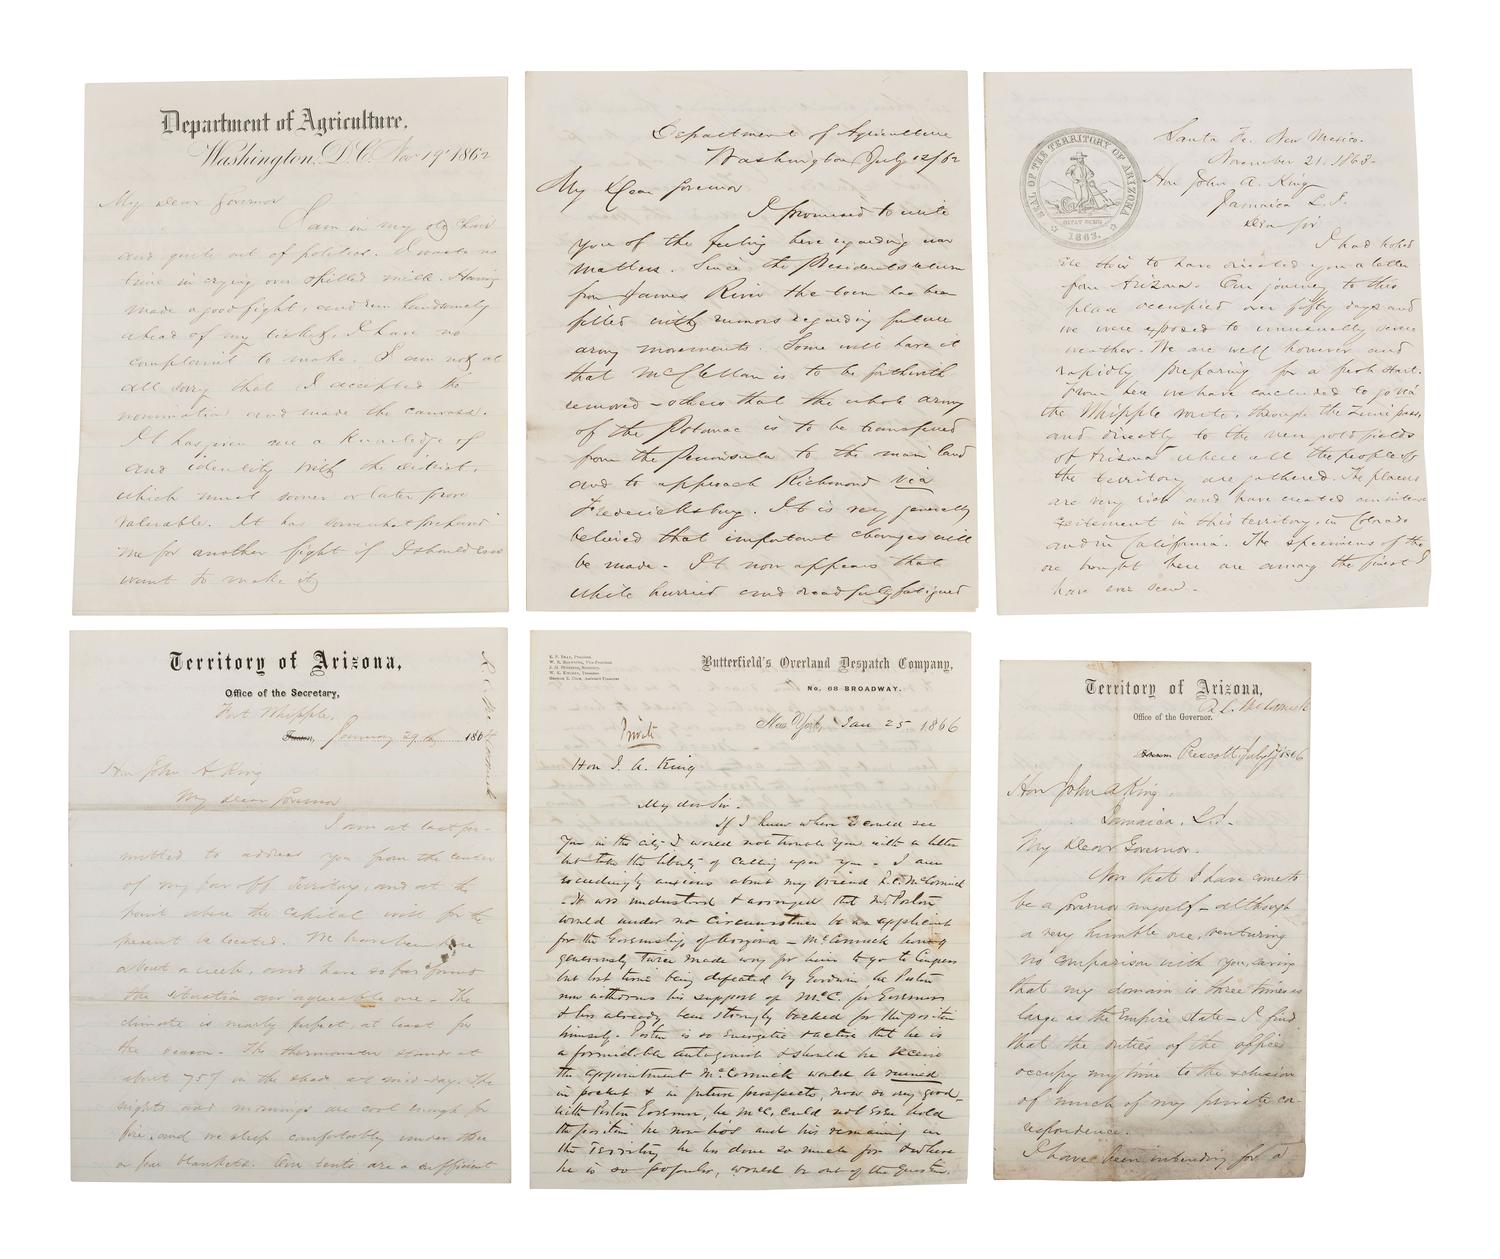 Department of Agriculture.
Washington, D.C. Nov 19th 1862
My dear Governor
I am in my old chair
and quite out of politics. I waste no
time in crying over spilled milk. Having
made a good fight, and run handsomely
ahead of my ticket, I have no
complaint to make. I am not at
all sorry that I accepted the
nomination and made the canvass.
It has given me a knowledge of
and identity with the district,
which must sooner or later prove
valuable. It has somewhat prepared
me for another fight if I should ever
want to make it
Department of Agriculture
Washington July 12/62
My Dear Governor
I promised to write
you of the feeling here regarding war
matters. Since the Presidents return
from James River the town has been
filled with rumors regarding future
army movements. Some will have it
that McClellan is to be forthwith
removed - others that the whole army
of the Potomac is to be transferred
from the Peninsula to the main land
and to approach Richmond via
Fredericksburg. It is very generally
believed that important changes will
be made - It now appears that
while hurried and dreadfully fatigued
SEAL OF THE TERRITORY OF ARIZONA
DITAT DEUS
1863.
Santa Fe. New Mexico.
November 21. 1863.
Hon John A. King
Jamaica L.I.
Dear Sir
I had hoped
ere this to have directed you a letter
from Arizona. Our journey to this
place occupied over fifty days and
we were exposed to unusually severe
weather. We are well however and
rapidly preparing for a fresh start.
From here we have concluded to go via
the Whipple route, through the Zuni pass,
and directly to the new gold fields
of Arizona where all the people of
the territory are gathered. The placers
are very rich and have created an intense
excitement in this territory, in Colorado
and in California. The specimens of the
ore brought here are among the finest I
have ever seen.
Territory of Arizona,
Office of the Secretary,
Fort Whipple,
Tucson, January 29th, 1864
R. C. McCormick
Hon John A King
My dear Governor
I am at last per-
mitted to address you from the center
of my far off Territory, and at the
point where the Capital will for the
present be located. We have been here
about a week, and have so far found
the situation an agreeable one - The
climate is nearly perfect, at least for
the season. The thermometer stands at
about 75° in the shade at mid-day. The
nights and mornings are cool enough for
fire, and we sleep comfortably under three
or four blankets. Our tents are a sufficient
Butterfield's Overland Despatch Company,
No. 68 BROADWAY.
New York, Jan 25 1866
Private
Hon J. A. King
My dear Sir.
If I knew where I could see
you in the city I would not trouble you with a letter
but take the liberty of calling upon you - I am
exceedingly anxious about my friend R.C. McCormick
- It was understood & arranged that Mr Poston
would under no circumstances be an applicant
for the Governorship of Arizona - McCormick having
generously twice made way for him to go to Congress
but last time being defeated by Goodwin, he Poston
now withdraws his support of McC. for Governor
& has already been strongly backed for the position
himself. Poston is so energetic & active that he is
a formidable antagonist & should he receive
the appointment McCormick would be ruined
in pocket & in future prospects, now so very good -
with Poston Governor, he McC. could not even hold
the position he now holds and his remaining in
the Territory he has done so much for & where
he is so popular, would be out of the question.
Territory of Arizona,
R. C. McCormick
Office of the Governor.
Tucson Prescott, July 1866
Hon John A King.
Jamaica, L.I.
My Dear Governor.
Now that I have come to
be a Governor myself - although
a very humble one, venturing
no comparison with you, saving
that my domain is three times as
large as the Empire State - I find
that the duties of the office
occupy my time to the exclusion
of much of my private cor-
respondence.
I have been intending for a